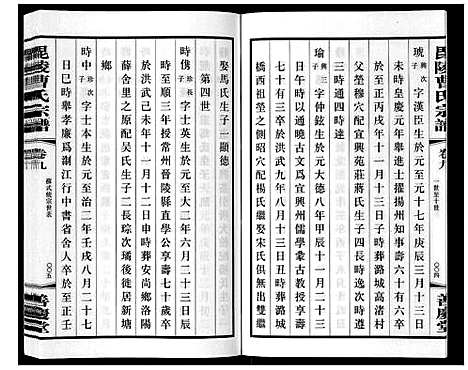 毘陵曹氏宗譜
卷九
一世至十世
〇〇四
善慶堂
琥 興次子 字漢臣生於元十七年庚辰三月十三日
未時皇慶元年舉進士擢揚州知事壽六十有六終
於至正丙戌年十一月十三日子時葬潞城高渚村
父塋穆穴配宜興苑莊蔣氏生子四長時逸次時遇
三時通四時達
瑜 興三子 字仲鉉生於元大德八年甲辰十一月十三
日午時以通曉古文爲宜興州儒學蒙古教授享壽
七十有三卒於洪武九年八月十三日丑時葬潞城
橋西祖塋之側昭穴配楊氏繼娶宋氏俱無出雙繼
娶馬氏生子一顯德
第四世
時俊 珍長子 字士英生於元大二年六月二十三日辰
時至順三年授常州晉陵縣直學公享壽七十歲卒
於洪武己未年十一月十二日申時葬安尚鄉洛陽
薛舍里之原配吳氏生子二長琮次璘後徙居新塘
鄉
時中 珍次子 字士本生於元至治二年壬戌八月二十七
日巳時舉孝廉爲淛江行中書省舍人卒於至正
毘陵曹氏宗譜
卷九
蘇式統宗世表
〇〇五
善慶堂